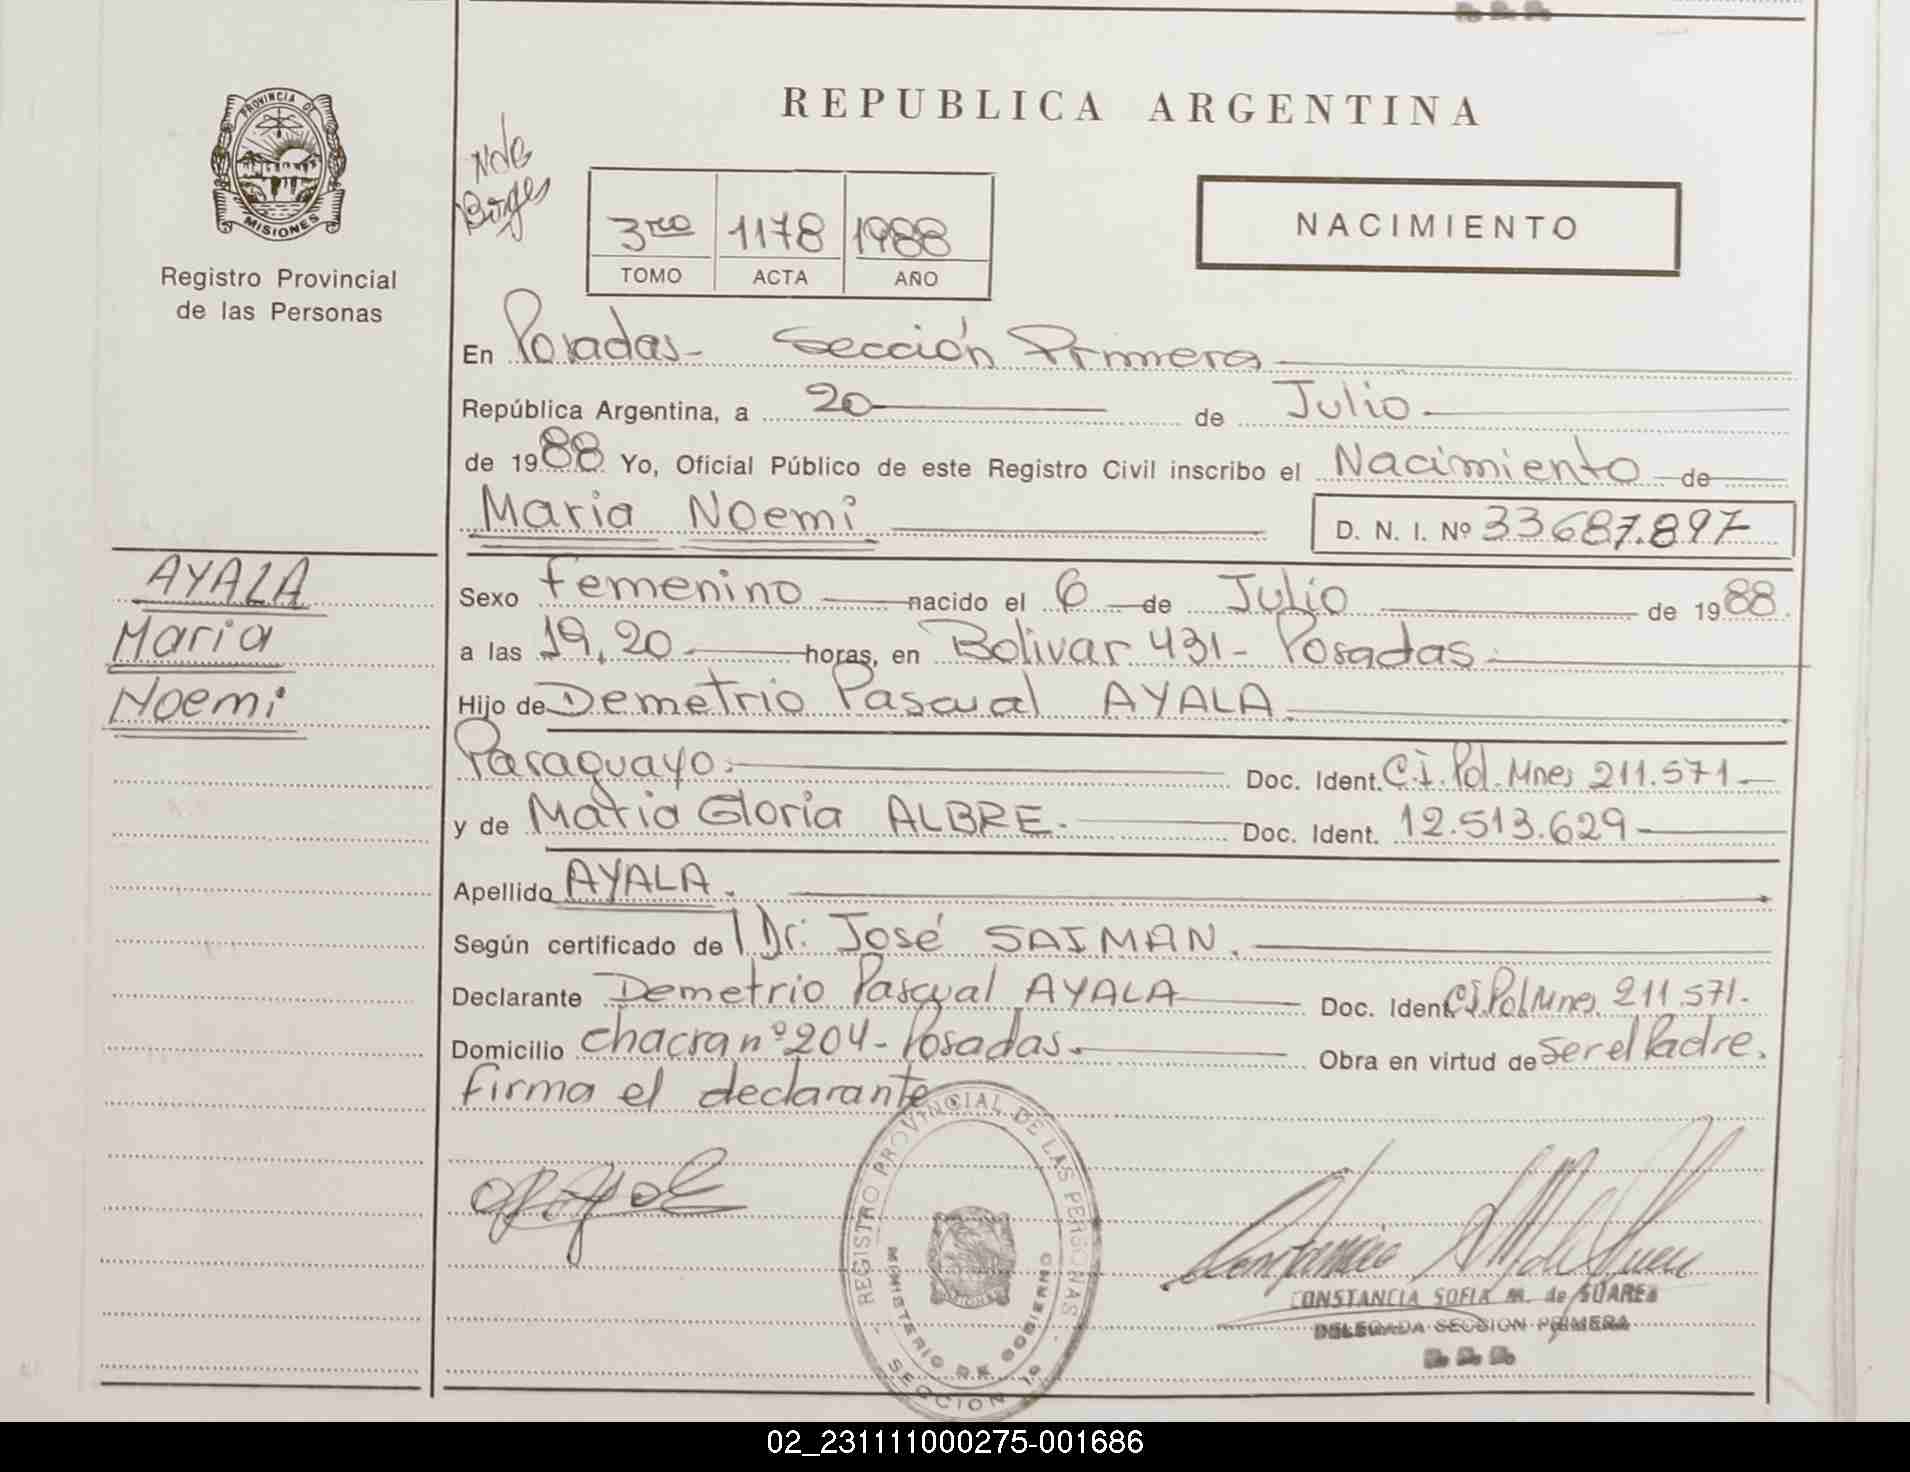 PROVINCIA DE
MISIONES
Registro Provincial
de las Personas
AYALA
Maria
Noemi
REPUBLICA ARGENTINA
Borges
3ro 1178 1988
TOMO ACTA AÑO
NACIMIENTO
En Posadas- Sección Primera
República Argentina, a 20 de Julio
de 1988 Yo, Oficial Público de este Registro Civil inscribo el Nacimiento de
Maria Noemi D. N. I. Nº 33687.897
Sexo femenino nacido el 6 de Julio de 1988.
a las 19,20 horas, en Bolivar 431- Posadas
Hijo de Demetrio Pascual AYALA.
Paraguayo. Doc. Ident. C.I. Pol. Mnes 211.571
y de Maria Gloria ALBRE. Doc. Ident. 12.513.629
Apellido AYALA.
Según certificado de Dr. José SAIMAN.
Declarante Demetrio Pascual AYALA Doc. Ident. C.I. Pol. Mnes. 211.571.
Domicilio chacra nº 204- Posadas. Obra en virtud de ser el Padre.
firma el declarante
REGISTRO PROVINCIAL DE LAS PERSONAS
MINISTERIO DE GOBIERNO
SECCION 1ª
CONSTANCIA SOFIA M. de SUAREZ
DELEGADA SECCION PRIMERA
02_231111000275-001686